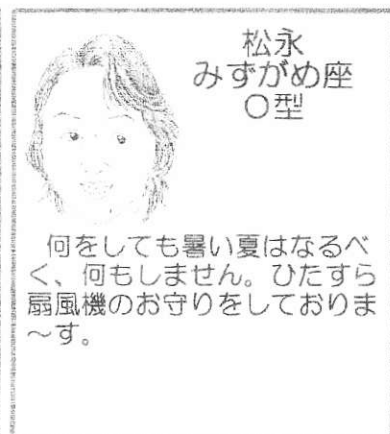 松永
みずがめ座
O型
何をしても暑い夏はなるべ
く、何もしません。ひたすら
扇風機のお守りをしておりま
〜す。